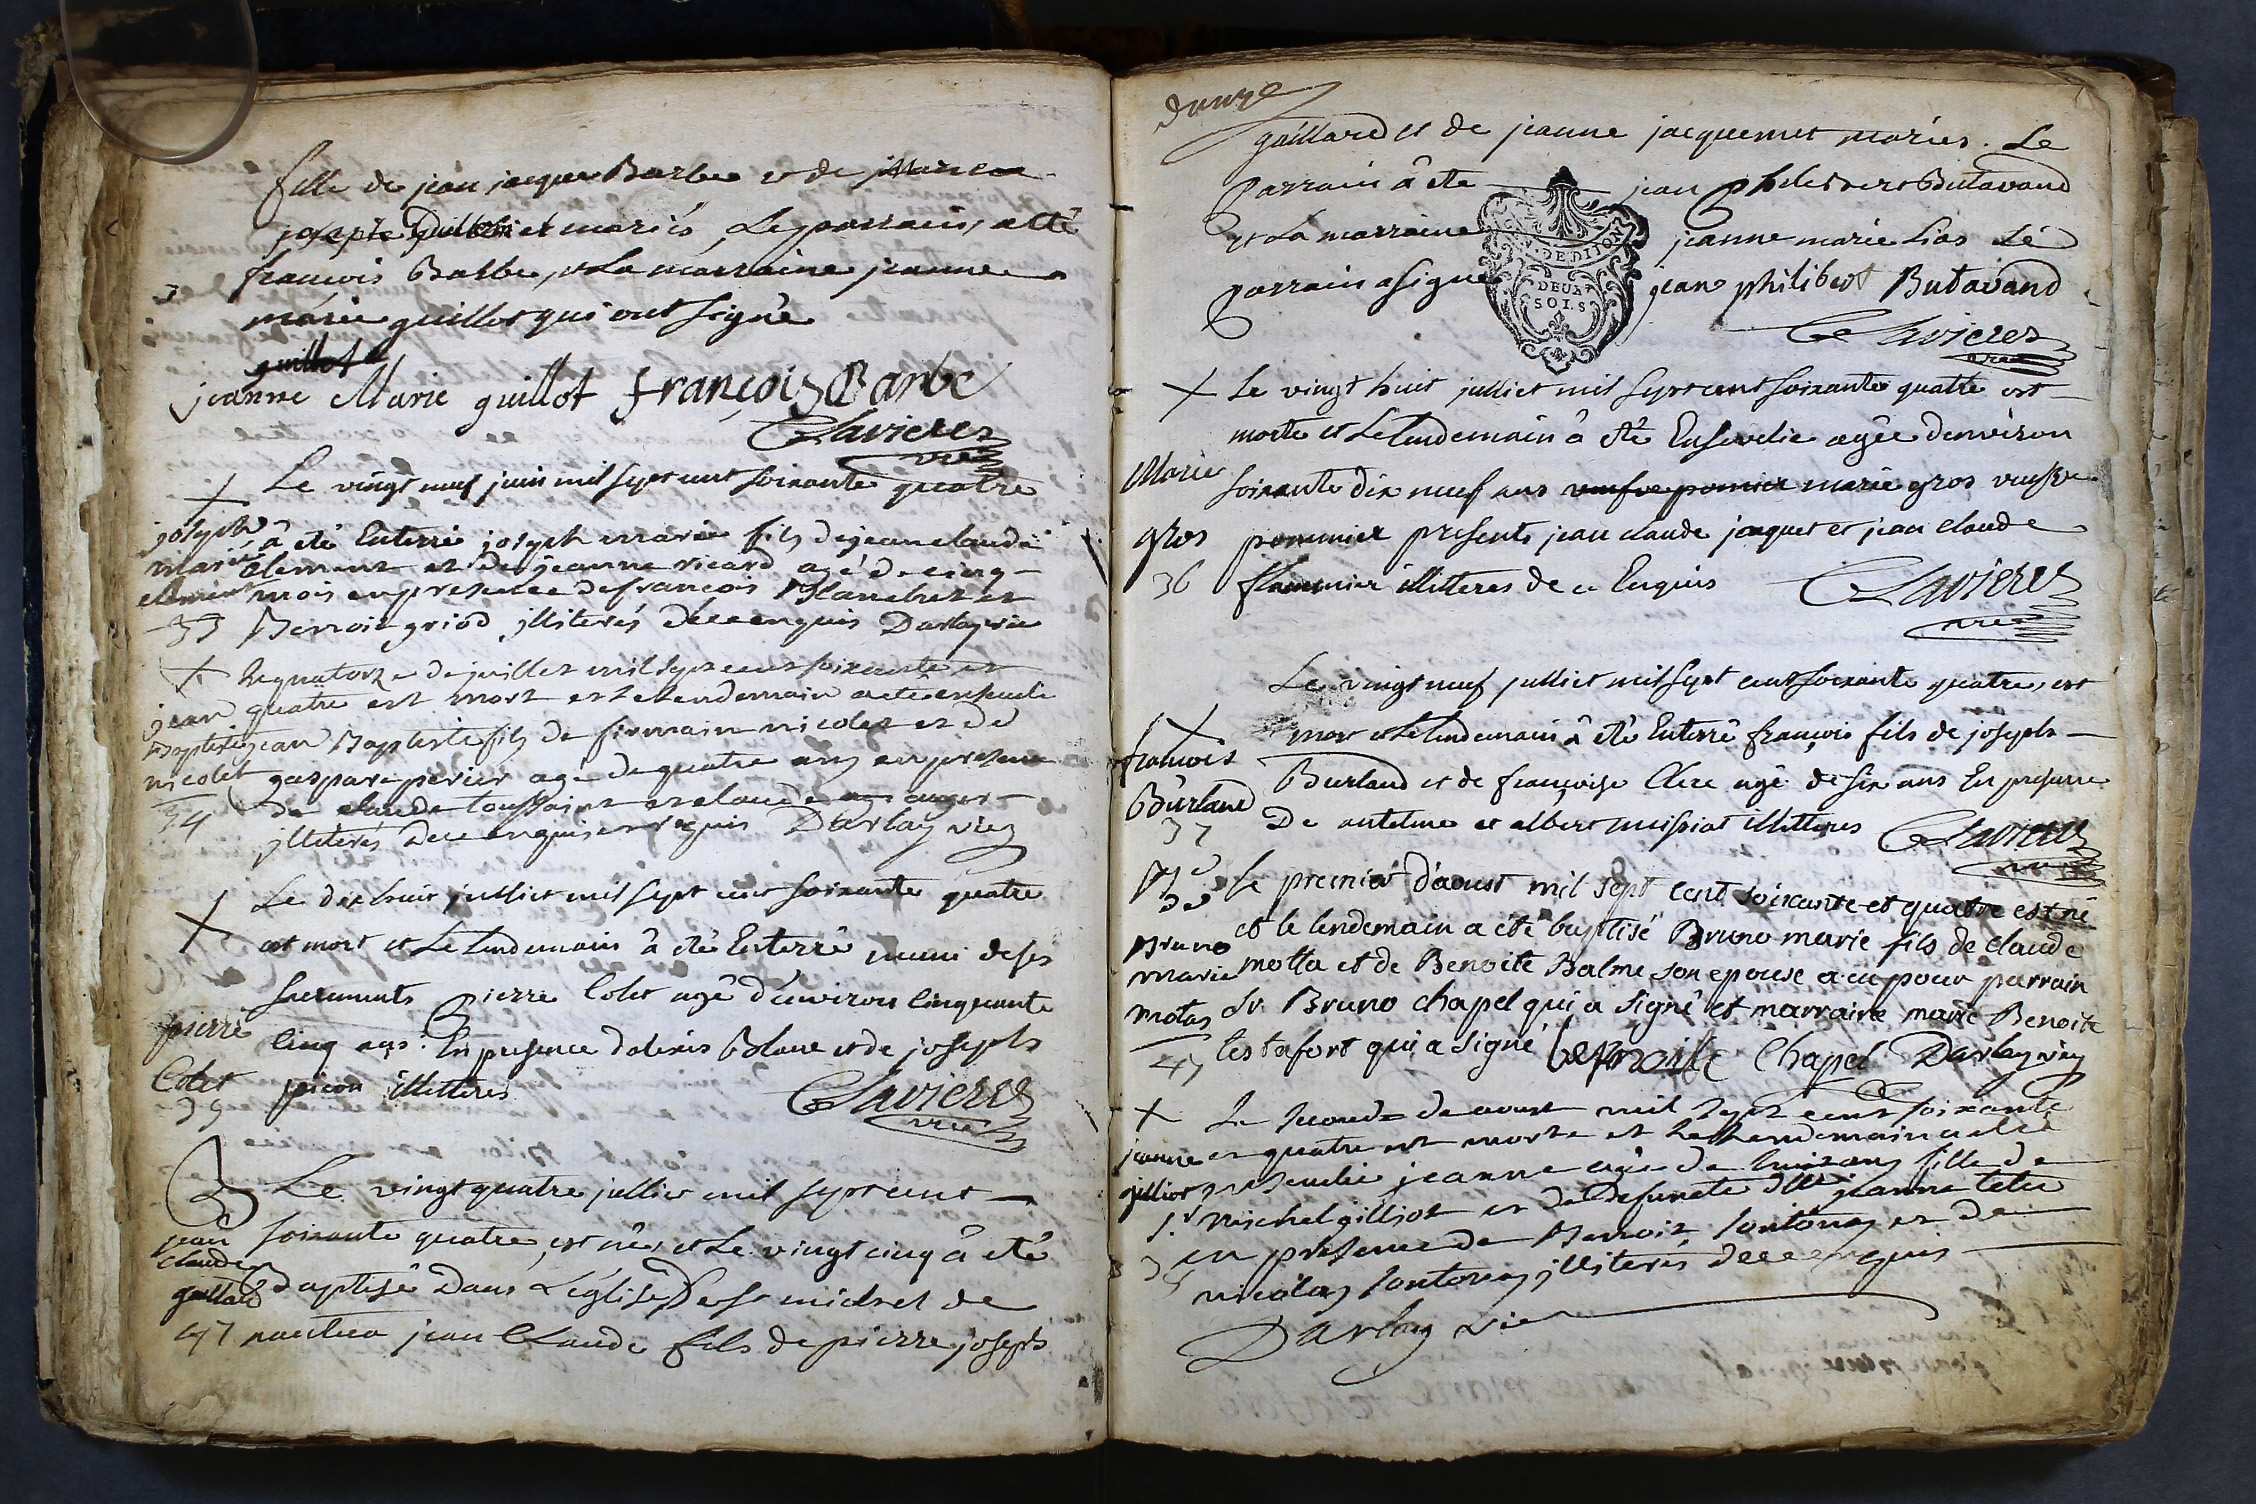 fille de jean jacque Barbe et de
marié, Le parrain, a été
francois Barbe, et La marraine jeanne
marie guillot qui ont signé
guillot
jeanne Marie guillot françois Barbe
Clavieres
vre
Le vingt neuf juin mil sept cent soixante quatre
joseph à été Enterré joseph marie fils de jean claude
marie clement et de jeanne ricard agé de cinq
clement mois en presence de francois Blanchet et
33 Benoit griod illiterés de ce enquis Darlay vic
Le quatorze de juillet mil sept cent soixante et
jean quatre est mort et le lendemain a eté
Baptiste jean Baptiste fils de firmain nicolet et de
nicolet gaspare perier agé de quatre ans en presence
34 de claude toussaint et claude
illiterés de ce enquis et requis Darlay vic
Le dix huit julliet mil sept cent soixante quatre
est mort et Le lendemain à été Enterré muni de ses
sacrements pierre Colet agé d'environ Cinquante
pierre Cinq ans. En presence d'alexis Blanc et de joseph
Colet picon illitterés Clavieres
35 vre
B Le vingt quatre julliet mil sept cent
jean soixante quatre est né, et Le vingt cinq à été
claude Baptisé Dans L'église De St michel de
gaillard
47 nantua jean Claude fils de pierre joseph
douze
gaillard et de jeanne jacquemet mariés. Le
parrain à été jean philibert Butavand
et La marraine jeanne marie Lias Le
parrain a signé jean philibert Butavand
DEUX
SOLS
Clavieres
vre
Le vingt huit julliet mil sept cent soixante quatre est
morte et Le lendemain à été Ensevelie agée d'environ
Marie soixante dix neuf ans veufve pomier marie gros veufve
gros pommier presents jean claude jaquet et jean claude
36 illitteres de ce Enquis Clavieres
vre
Le vingt neuf julliet mil sept cent soixante quatre, est
mort et Le lendemain à été Enterré françois fils de joseph
francois
Burland Burland et de françoise Clerc agé de six ans En presence
37 De antelme et albert missiat illitteres Clavieres
vre
le premier d'aoust mil sept cent soixante et quatre est né
et le lendemain a été baptisé Bruno marie fils de claude
Bruno
marie motta et de Benoite Balme son epouse a eu pour parrain
motas Sr. Bruno chapel qui a signé et marraine marie Benoite
47 testafort qui a signé Chapel Darlay vic
Le second de aoust mil sept cent soixante
jeanne et quatre est morte et le lendemain a eté
gilliot jeanne agée de huit ans fille de
michel gilliot et de defuncte jeanne
en presence de Benoit et de
38 nicolas illiterés de ce enquis
Darlay vic